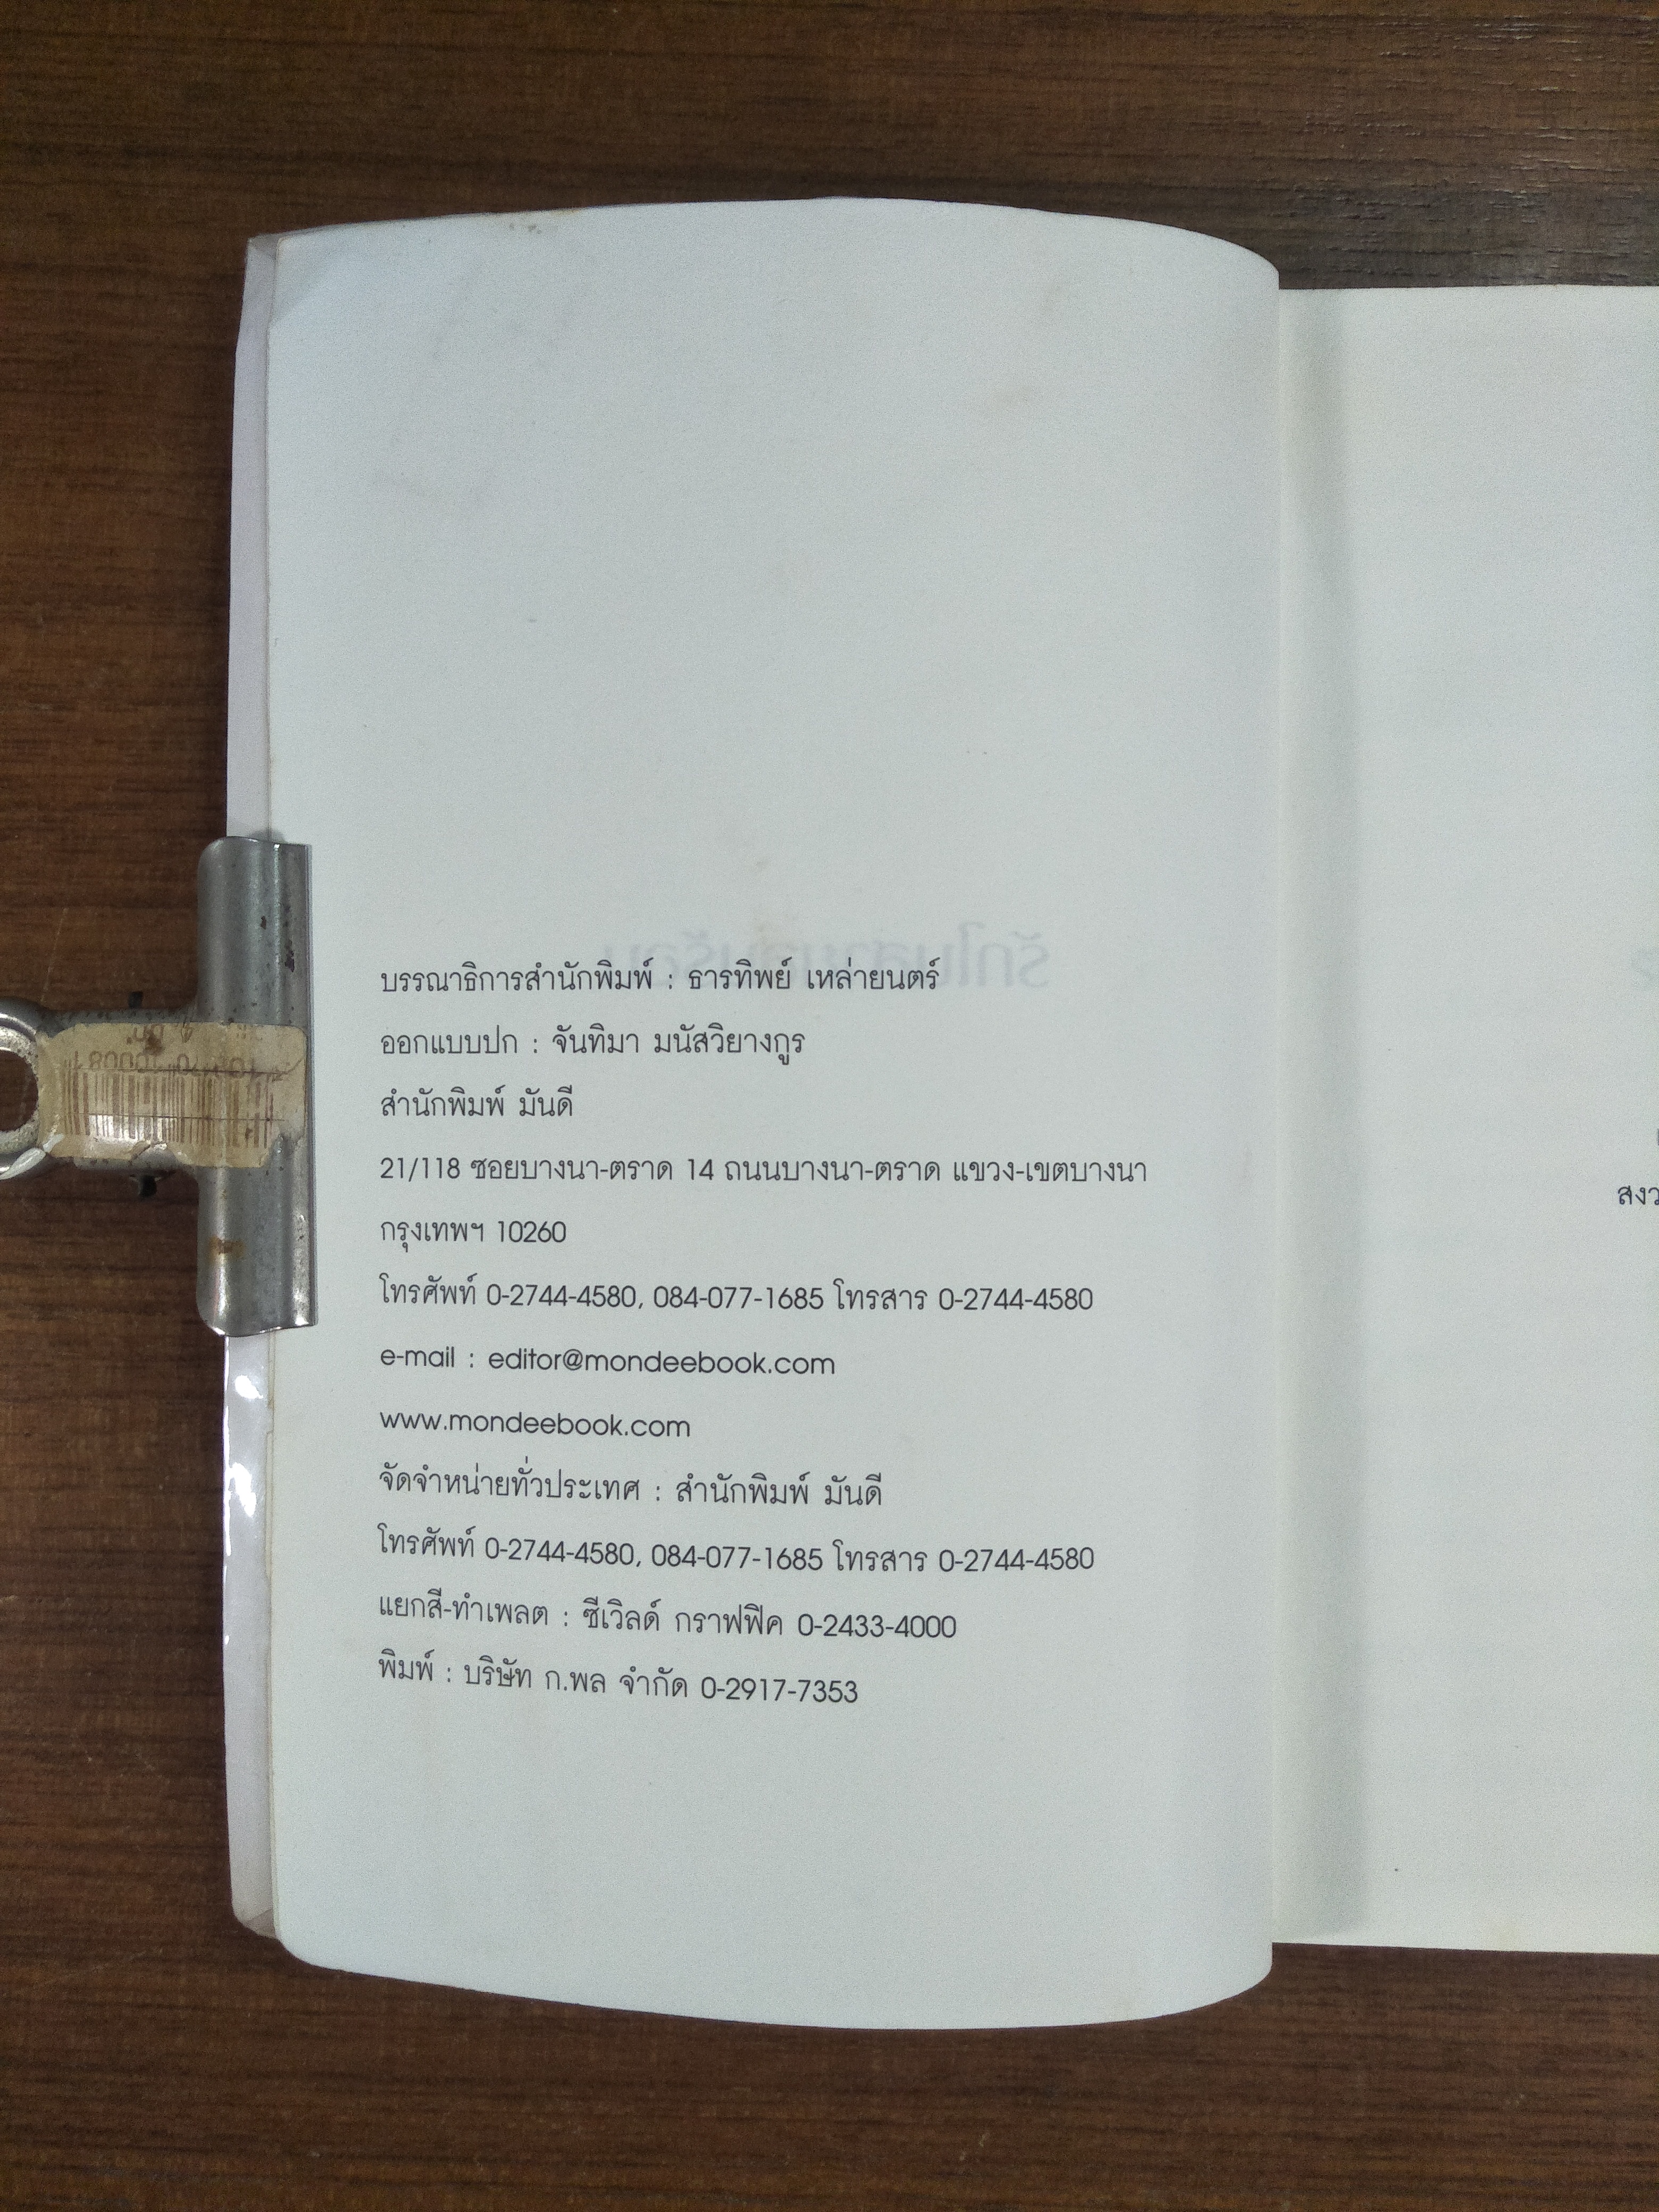 บรรณาธิการสำนักพิมพ์ : ธารทิพย์ เหล่ายนตร์
ออกแบบปก : จันทิมา มนัสวิยางกูร
สำนักพิมพ์ มันดี
21/118 ซอยบางนา-ตราด 14 ถนนบางนา-ตราด แขวง-เขตบางนา
กรุงเทพฯ 10260
โทรศัพท์ 0-2744-4580, 084-077-1685 โทรสาร 0-2744-4580
e-mail : editor@mondeebook.com
www.mondeebook.com
จัดจำหน่ายทั่วประเทศ : สำนักพิมพ์ มันดี
โทรศัพท์ 0-2744-4580, 084-077-1685 โทรสาร 0-2744-4580
แยกสี-ทำเพลต : ซีเวิลด์ กราฟฟิค 0-2433-4000
พิมพ์ : บริษัท ก.พล จำกัด 0-2917-7353